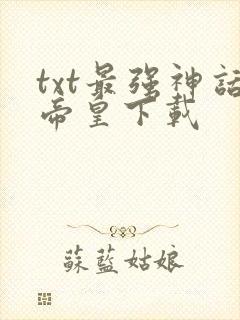 txt最强神話
帝皇下載
蘇藍姑娘